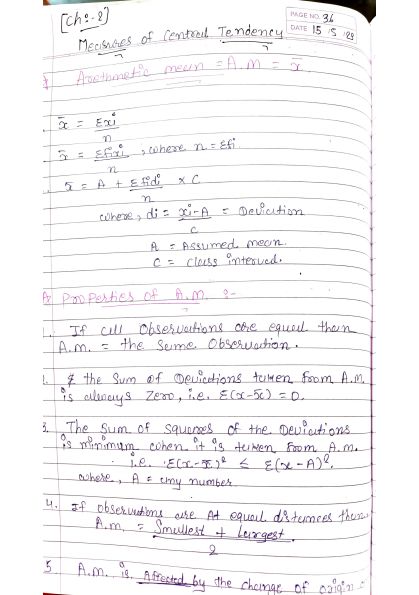 [Ch:-2]
PAGE NO. 36
DATE 15 5 '23
Measures of Central Tendency
Arethmetic mean = A.M = x̄
x̄ = Σxi / n
x̄ = Σfixi / n , where n = Σfi
x̄ = A + Σfidi / n × C
where, di = xi-A / c = Deviation
A = Assumed mean.
C = class interval.
Properties of A.M. :-
1. If all Observations are equal than
A.M. = the same Observation.
2. the sum of Deviations taken from A.M.
is always zero, i.e. Σ(x-x̄) = 0.
3. The sum of squares of the Deviations
is minimum when it is taken from A.M.
i.e. Σ(x-x̄)² ≤ Σ(x-A)².
where, A = any number
4. If observations are At equal distances than
A.m. = Smallest + Largest / 2
5. A.M. is Affected by the change of origin